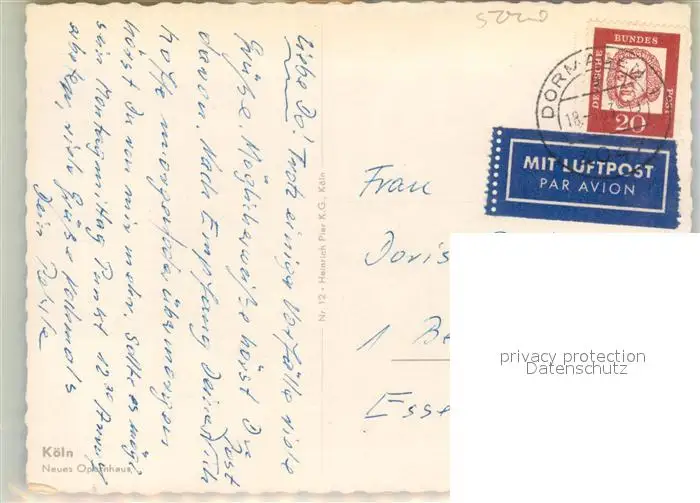 5000
Liebe Do! Trotz einiger Vorfälle viele
Grüße. Möglicherweise hörst Du
davon. Nach Empfang Deiner Post
hoffe morgen oder übermorgen
hörst Du von mir mehr. Sollte es mögl.
sein Montagmittag Punkt 12 30 Anruf
viele Grüße nochmals
Dein
Köln
Neues Opernhaus
Nr. 12 - Heinrich Pier K.G., Köln
DORMAGEN
18.
DEUTSCHE BUNDESPOST
20
MIT LUFTPOST
PAR AVION
Frau
Doris
1 Be
Esse
privacy protection
Datenschutz